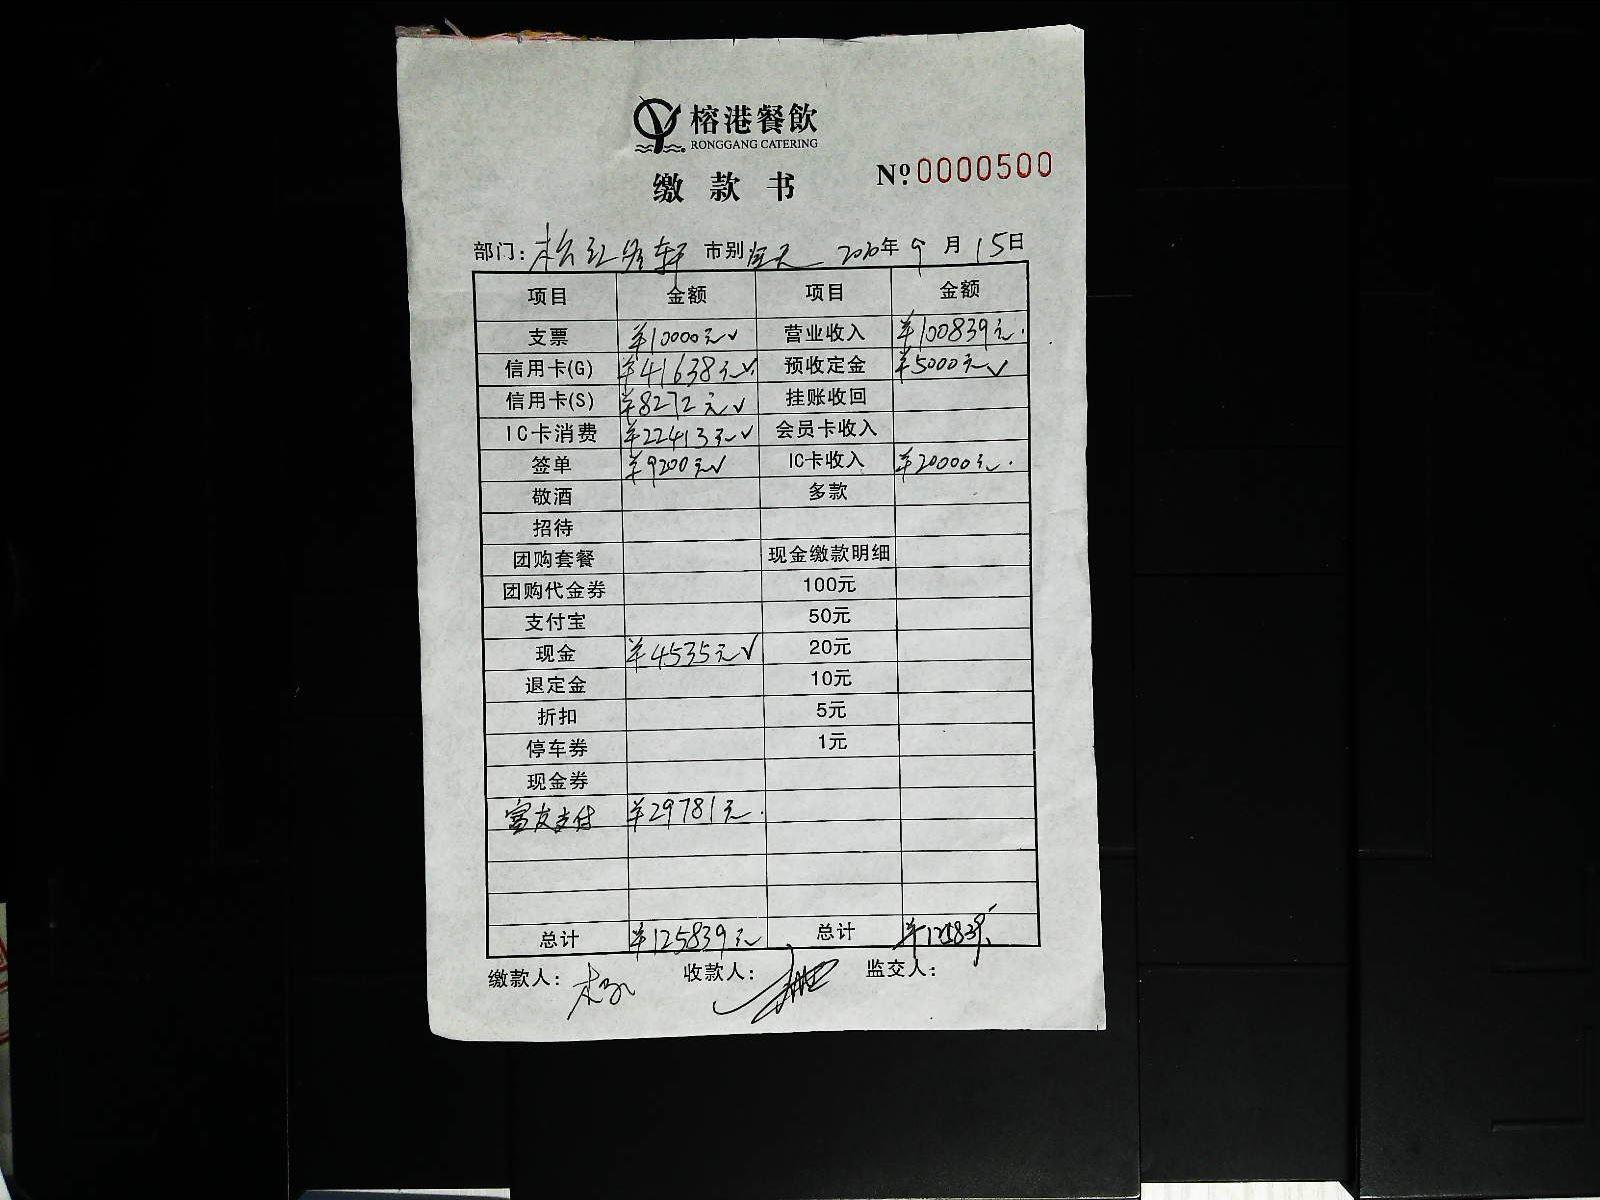 榕港餐飲
RONGGANG CATERING
缴款书 Nº:0000500
部门: 市别 全天 2020年 9 月 15日
项目 金额 项目 金额
支票 ¥10000元√ 营业收入 ¥100839元.
信用卡(G) ¥41638元√ 预收定金 ¥5000元√
信用卡(S) ¥8272元√ 挂账收回
IC卡消费 ¥22413元√ 会员卡收入
签单 ¥9200元√ IC卡收入 ¥20000元.
敬酒 多款
招待
团购套餐 现金缴款明细
团购代金券 100元
支付宝 50元
现金 ¥4535元√ 20元
退定金 10元
折扣 5元
停车券 1元
现金券
富友支付 ¥29781元.
总计 ¥125839元 总计
缴款人: 收款人: 监交人: